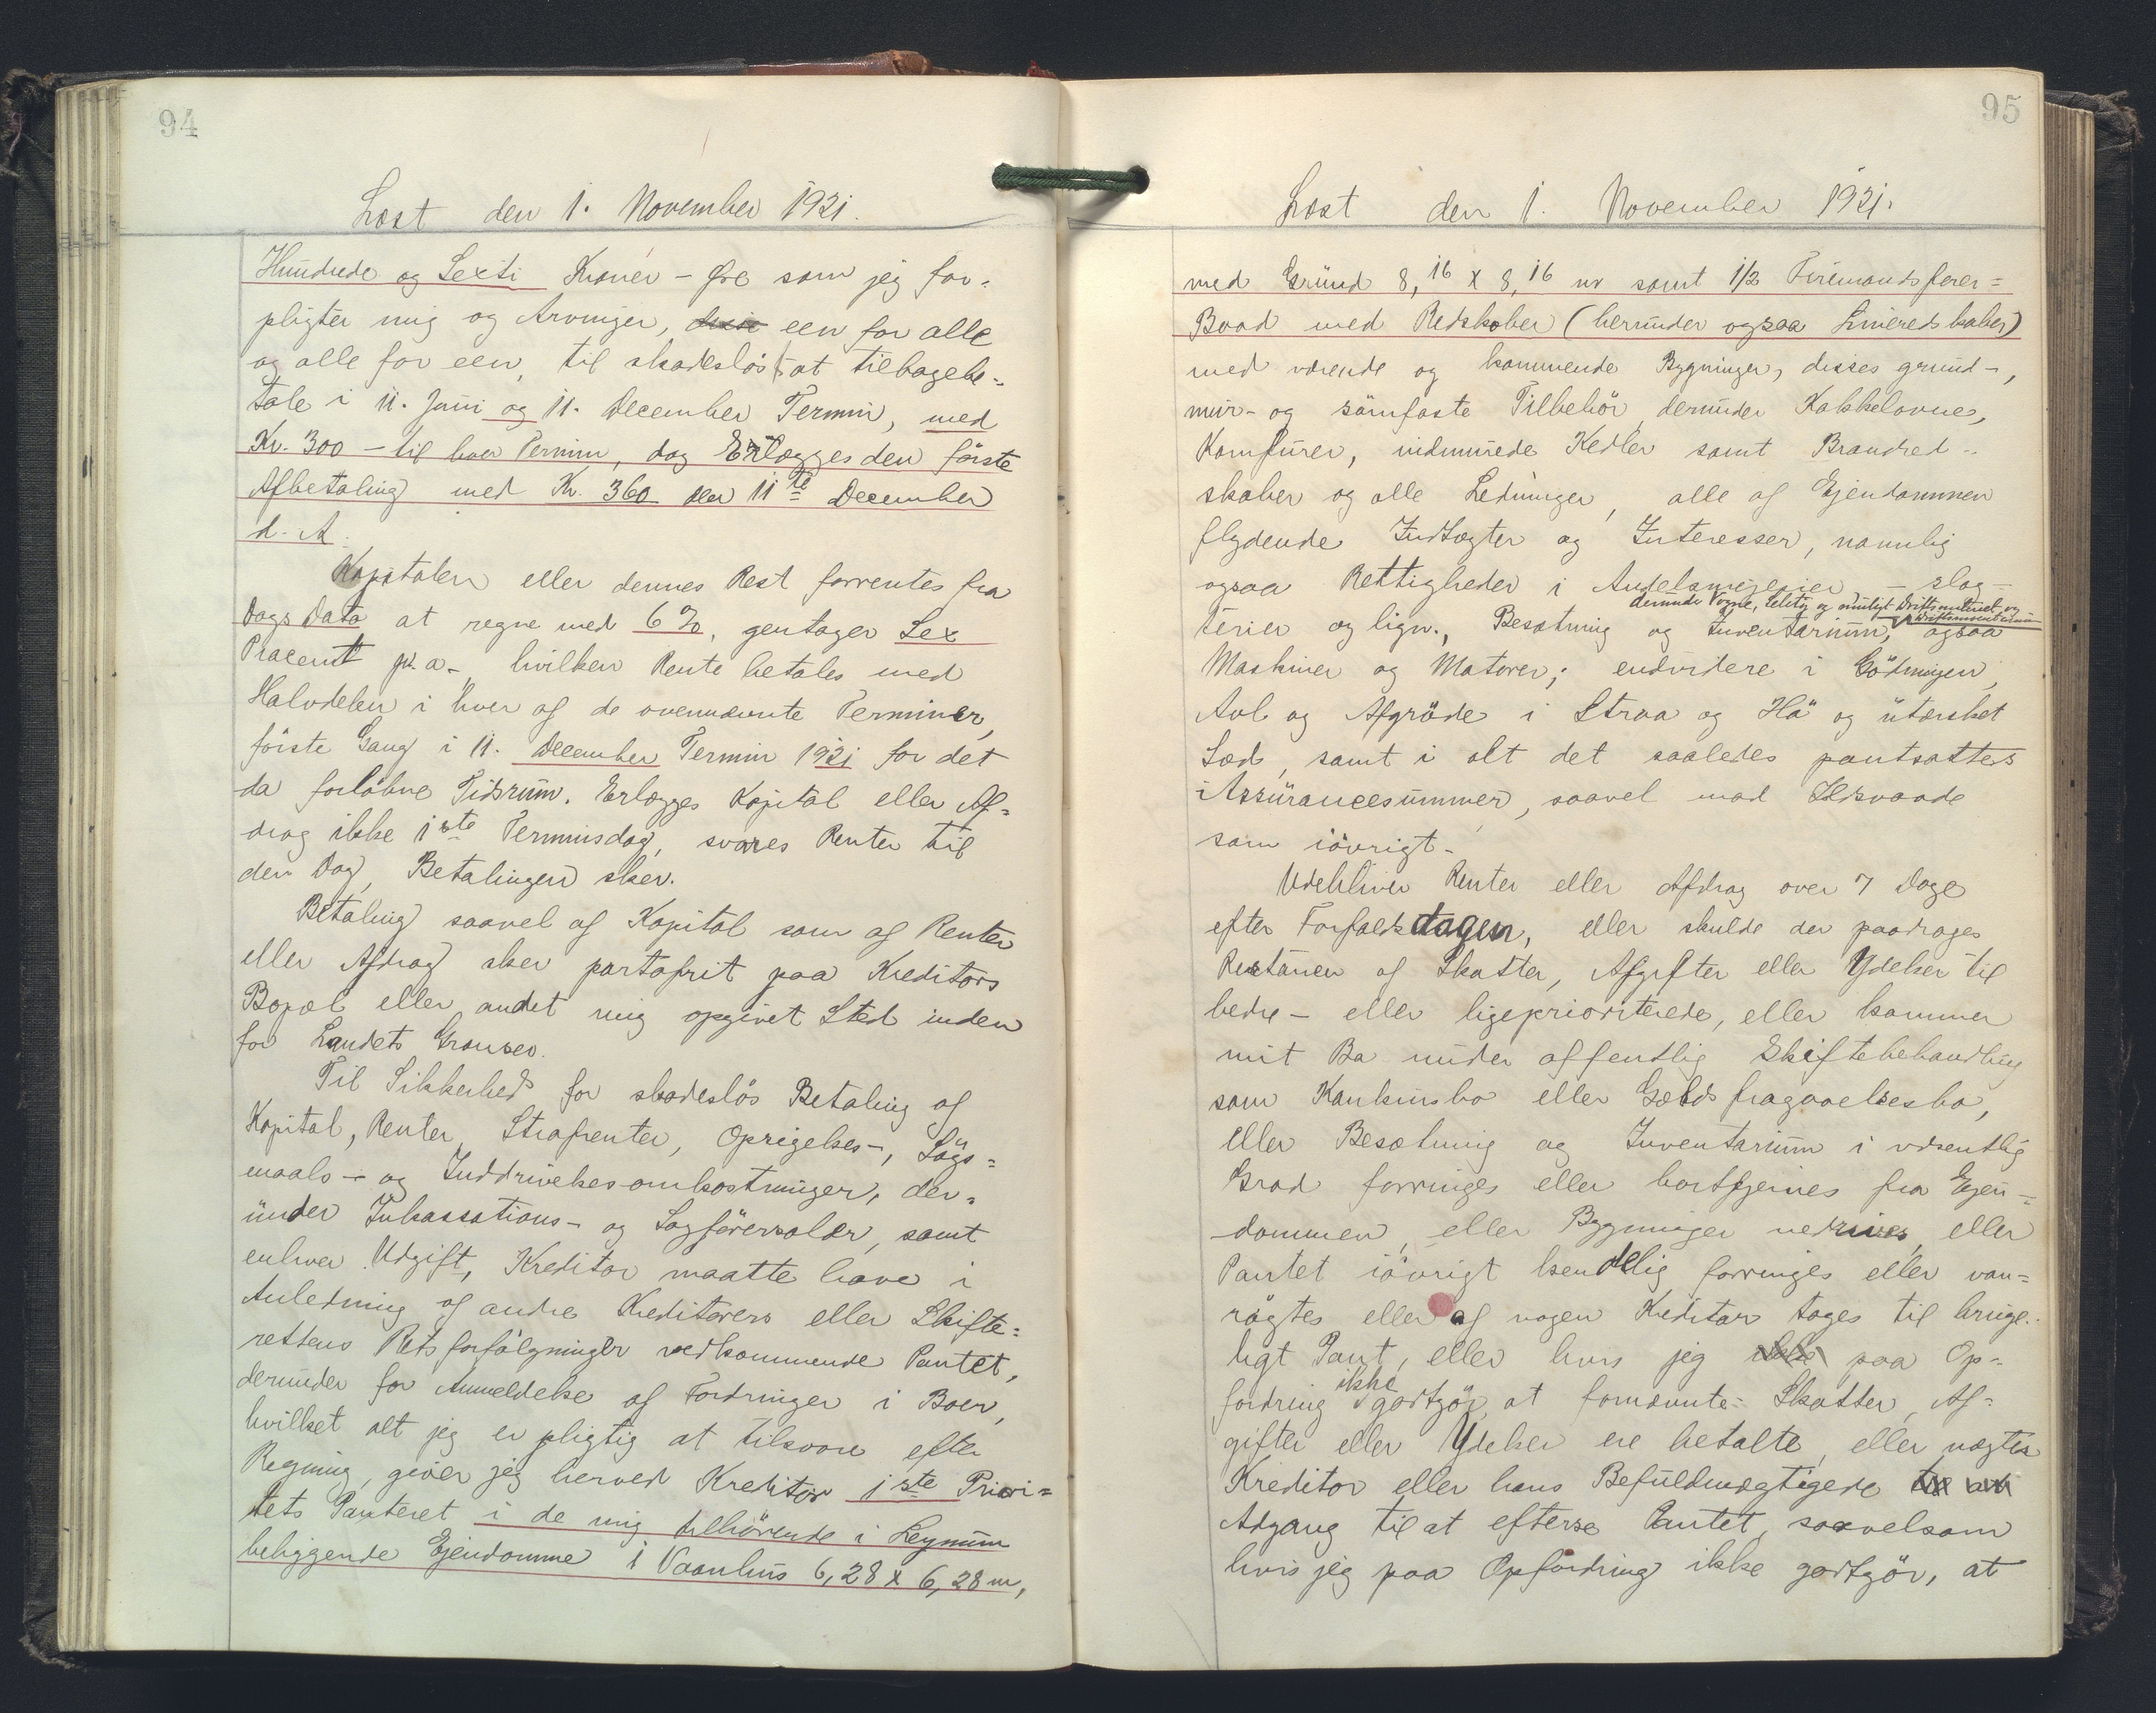 94
Læst den 1. November 1921.
Hundrede og Sexti Kroner - Øre som jeg for-
pligter mig og Arvinger, een for alle
og alle for een, til skadesløst at tilbagebe-
tale i 11. Juni og 11. December Termin, med
Kr. 300 - til hver Termin, dog Erlægges den første
Afbetaling med Kr. 360 den 11te December
d. A.
Kapitalen eller dennes Rest forrentes fra
Dags Dato at regne med 6%, gentager Sex
Procent p. a., hvilken Rente betales med
Halvdelen i hver af de ovennævnte Terminer,
første Gang i 11. December Termin 1921 for det
da forløbne Tidsrum. Erlægges Kapital eller Af-
drag ikke 1ste Terminsdag, svares Renter til
den Dag, Betalingen sker.
Betaling saavel af Kapital som af Renter
eller Afdrag sker portofrit paa Kreditors
Bopæl eller andet mig opgivet Sted inden
for Landets Grænser.
Til Sikkerhed for skadesløs Betaling af
Kapital, Renter, Strafrenter, Opsigelses-, Søgs-
maals- og Inddrivelsesomkostninger, der-
under Inkassations- og Sagførersalær, samt
enhver Udgift, Kreditor maatte have i
Anledning af andre Kreditorers eller Skifte-
rettens Retsforfølgninger vedkommende Pantet,
derunder for Anmeldelse af Fordringer i Boer,
hvilket alt jeg er pligtig at tilsvare efter
Regning, giver jeg herved Kreditor 1ste Priori-
tets Panteret i de mig tilhørende i Leynum
beliggende Ejendomme i Vaanhus 6,28 x 6,28 m,
95
Læst den 1. November 1921.
med Grund 8,16 x 8,16 m samt 1/2 Firemandsfarer-
Baad med Redskaber (herunder ogsaa Lineredskaber)
med værende og kommende Bygninger, disses grund-,
mur- og sømfaste Tilbehør, derunder Kakkelovne,
Komfurer, indmurede Kedler samt Brandred-
skaber og alle Ledninger, alle af Ejendommen
flydende Indtægter og Interesser, navnlig
ogsaa Rettigheder i Andelsmejerier - slag-
derunder Vogne, Seletøj og muligt Driftsmateriel og
Driftsinventarium
terier og lign., Besætning og Inventarium, ogsaa
Maskiner og Motorer; endvidere i Gødningen,
Avl og Afgrøde i Straa og Hø og utærsket
Sæd, samt i alt det saaledes pantsattes
Assurancesummer, saavel mod Ildsvaade
som iøvrigt.
Udebliver Renter eller Afdrag over 7 Dage
efter Forfaldsdagen, eller skulde der paadrages
Restancer af Skatter, Afgifter eller Ydelser til
bedre- eller ligeprioriterede, eller kommer
mit Bo under offentlig Skiftebehandling
som Konkursbo eller Gældsfragaaelsesbo,
eller Besætning og Inventarium i væsentlig
Grad forringes eller bortfjernes fra Ejen-
dommen, eller Bygninger nedrives, eller
Pantet iøvrigt kendelig forringes eller van-
røgtes eller af nogen Kreditor tages til bruge-
ligt Pant, eller hvis jeg ikke paa Op-
fordring ikke godtgør, at fornævnte Skatter, Af-
gifter eller Ydelser ere betalte, eller nægter
Kreditor eller hans Befuldmægtigede
Adgang til at efterse Pantet, saavelsom
hvis jeg paa Opfordring ikke godtgør, at